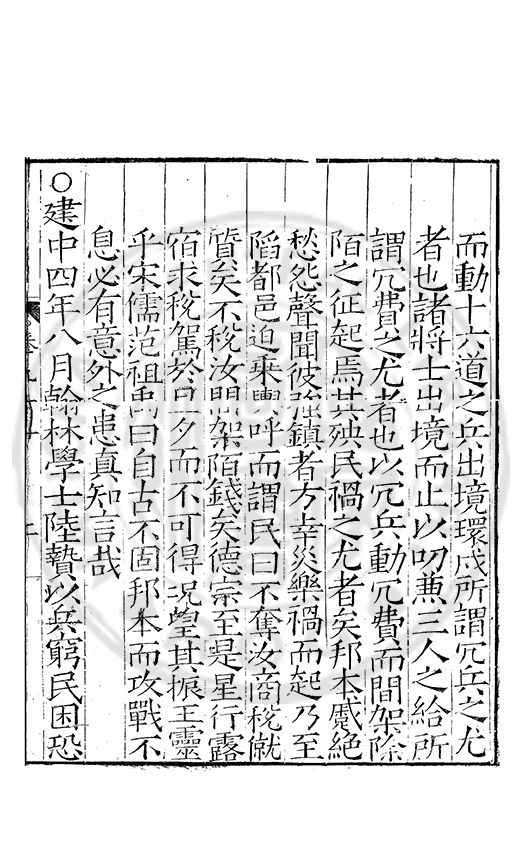 而動十六道之兵出境環戍所謂冗兵之尤
者也諸將士出境而止以叨兼三人之給所
謂冗費之尤者也以冗兵動冗費而間架除
陌之征起焉其殃民禍之尤者矣邦本蹙絶
愁怨聲聞彼強鎮者方幸災樂禍而起乃至
陷都邑迫乗輿呼而謂民曰不奪汝商稅僦
質矣不稅汝間架陌錢矣德宗至是星行露
宿求稅駕於旦夕而不可得况望其振王靈
乎宋儒范祖禹曰自古不固邦本而攻戰不
息必有意外之患真知言哉
○建中四年八月翰林學士陸贄以兵窮民困恐